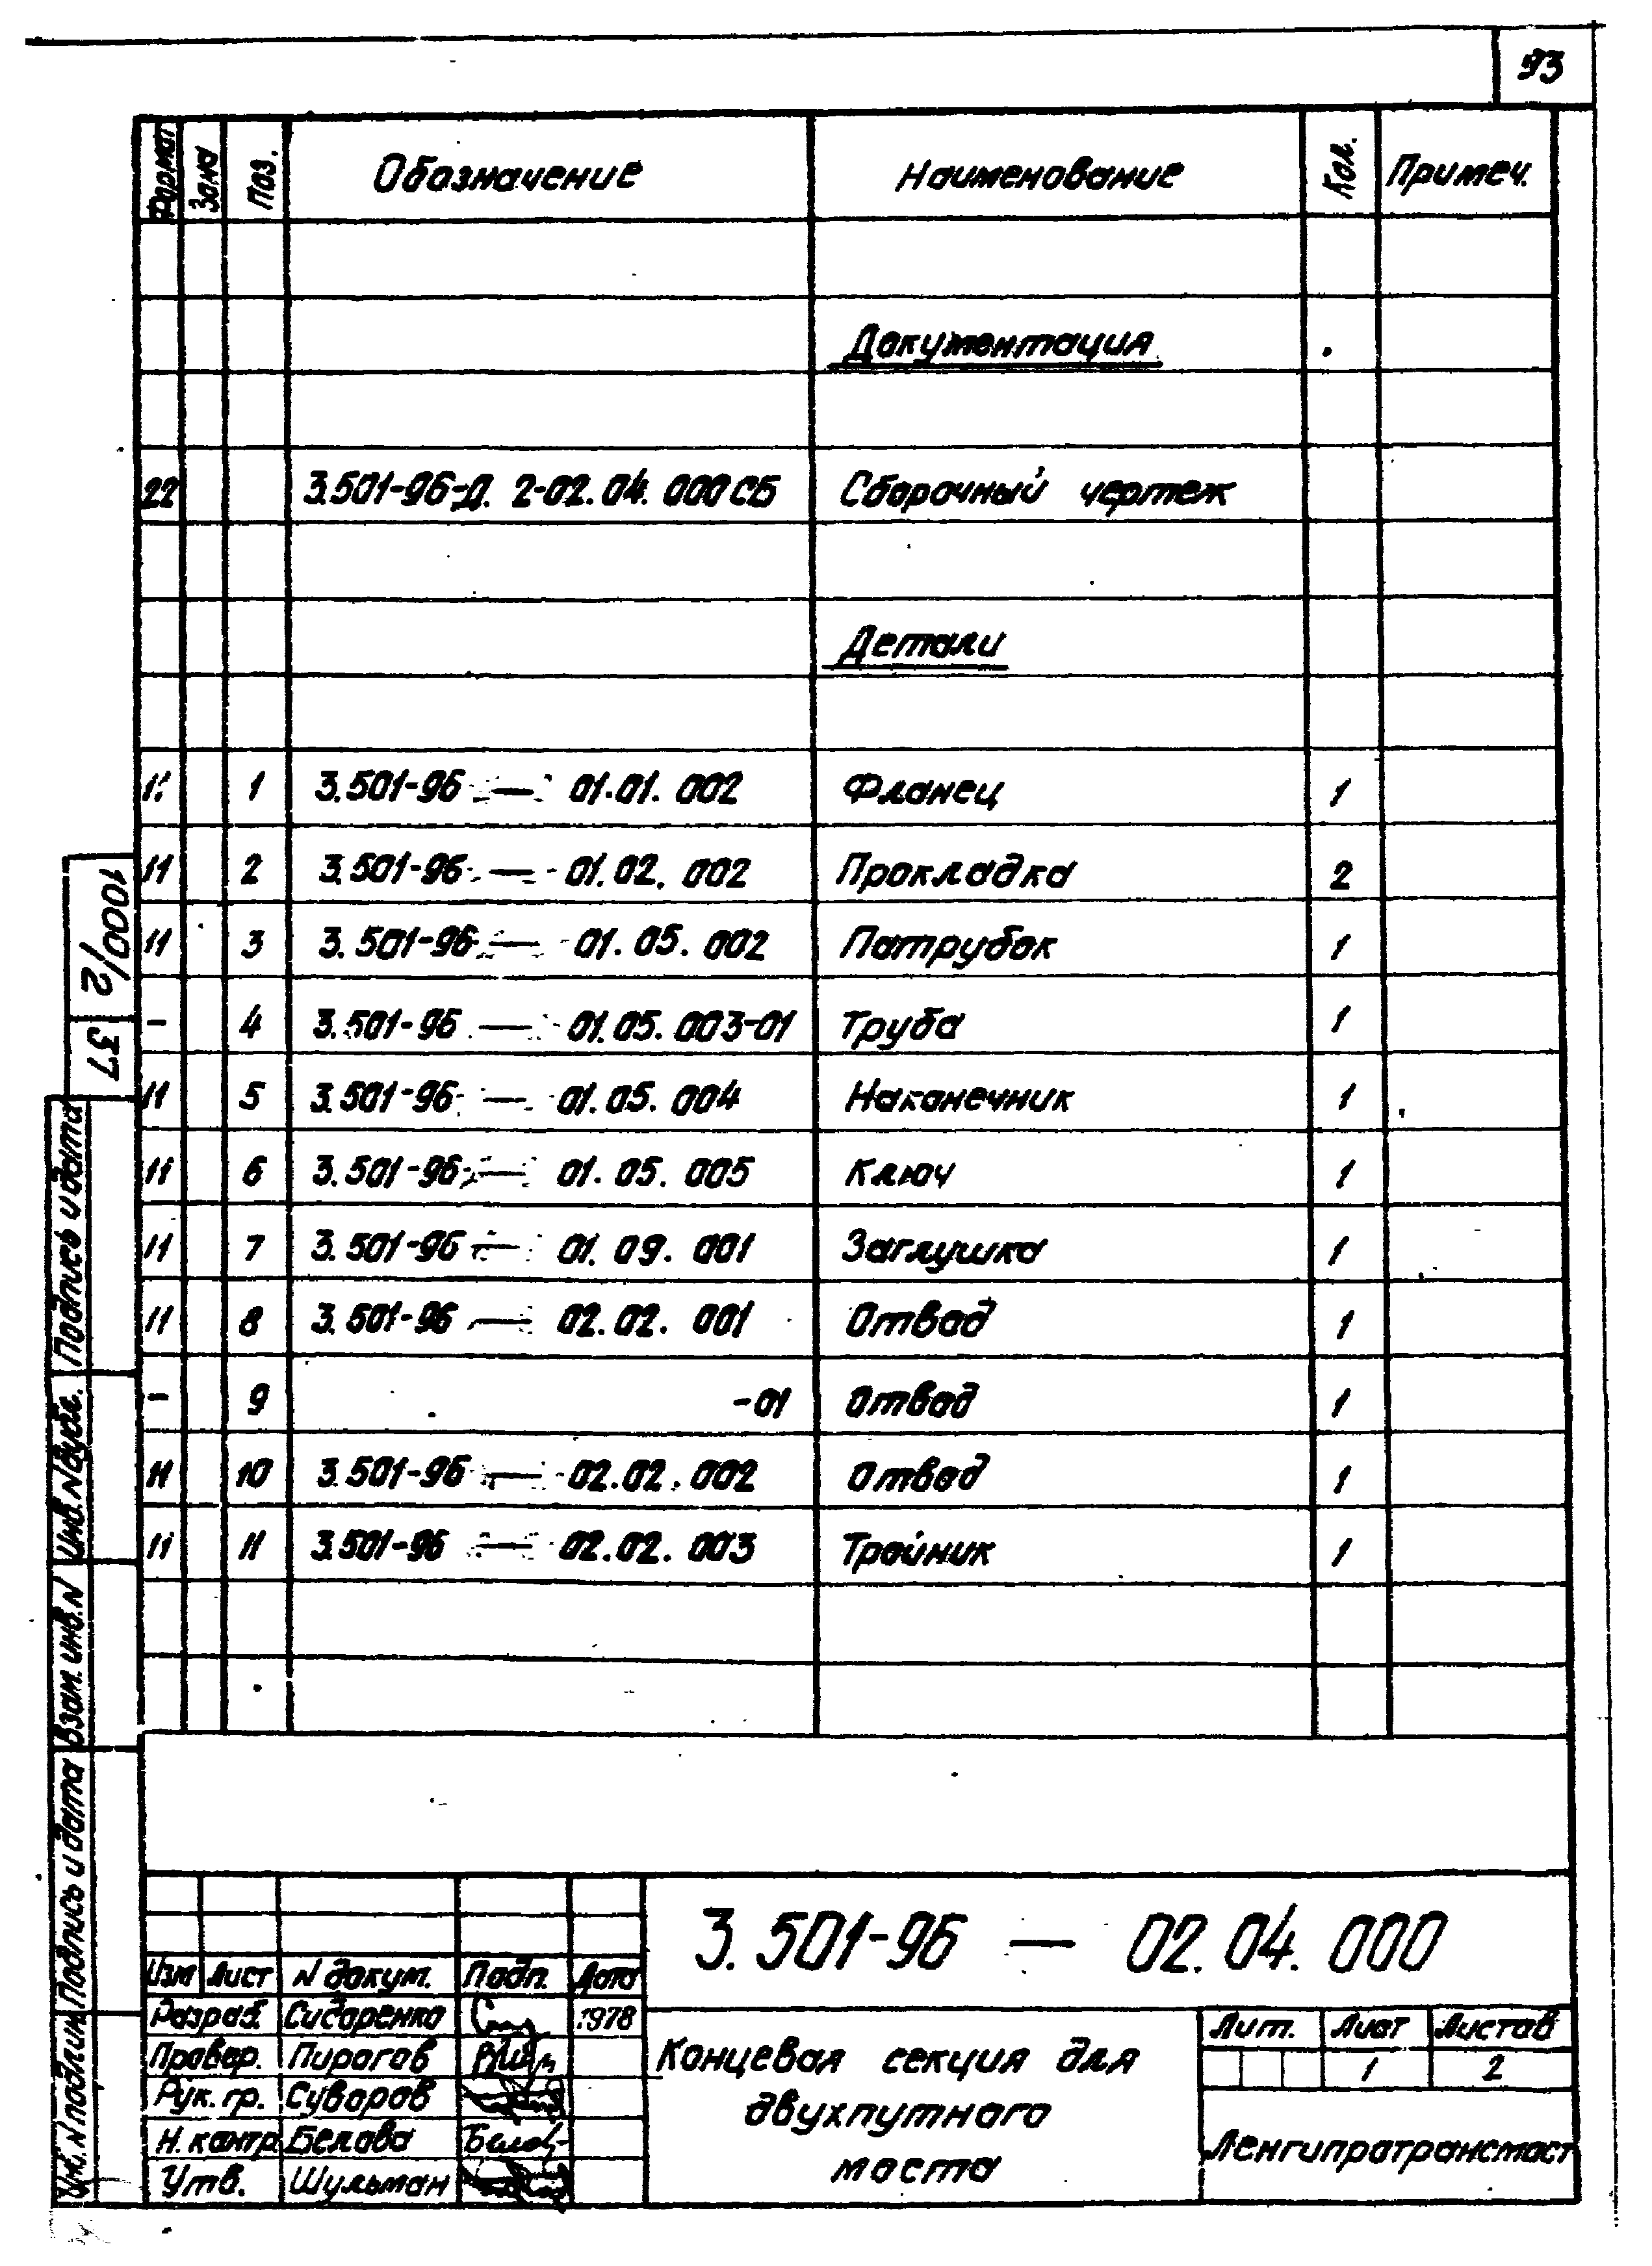 93
Формат Зона Поз. Обозначение Наименование Кол. Примеч.
Документация
22 3.501-96-Д. 2-02.04.000СБ Сборочный чертеж
Детали
11 1 3.501-96 — 01.01.002 Фланец 1
11 2 3.501-96 — 01.02.002 Прокладка 2
11 3 3.501-96 — 01.05.002 Патрубок 1
- 4 3.501-96 — 01.05.003-01 Труба 1
11 5 3.501-96 — 01.05.004 Наконечник 1
11 6 3.501-96 — 01.05.005 Ключ 1
11 7 3.501-96 — 01.09.001 Заглушка 1
11 8 3.501-96 — 02.02.001 Отвод 1
- 9 -01 Отвод 1
11 10 3.501-96 — 02.02.002 Отвод 1
11 11 3.501-96 — 02.02.003 Тройник 1
1000/2 37
Подпись и дата
Инв. N дубл.
Взам. инв. N
Подпись и дата
Инв. N подлин.
3.501-96 — 02.04.000
Изм Лист N докум. Подп. Дата
Разраб. Сидоренко 1978
Провер. Пирогов
Рук. гр. Суворов
Н. контр. Белова
Утв. Шульман
Концевая секция для
двухпутного
моста
Лит. Лист Листов
1 2
Ленгипротрансмост